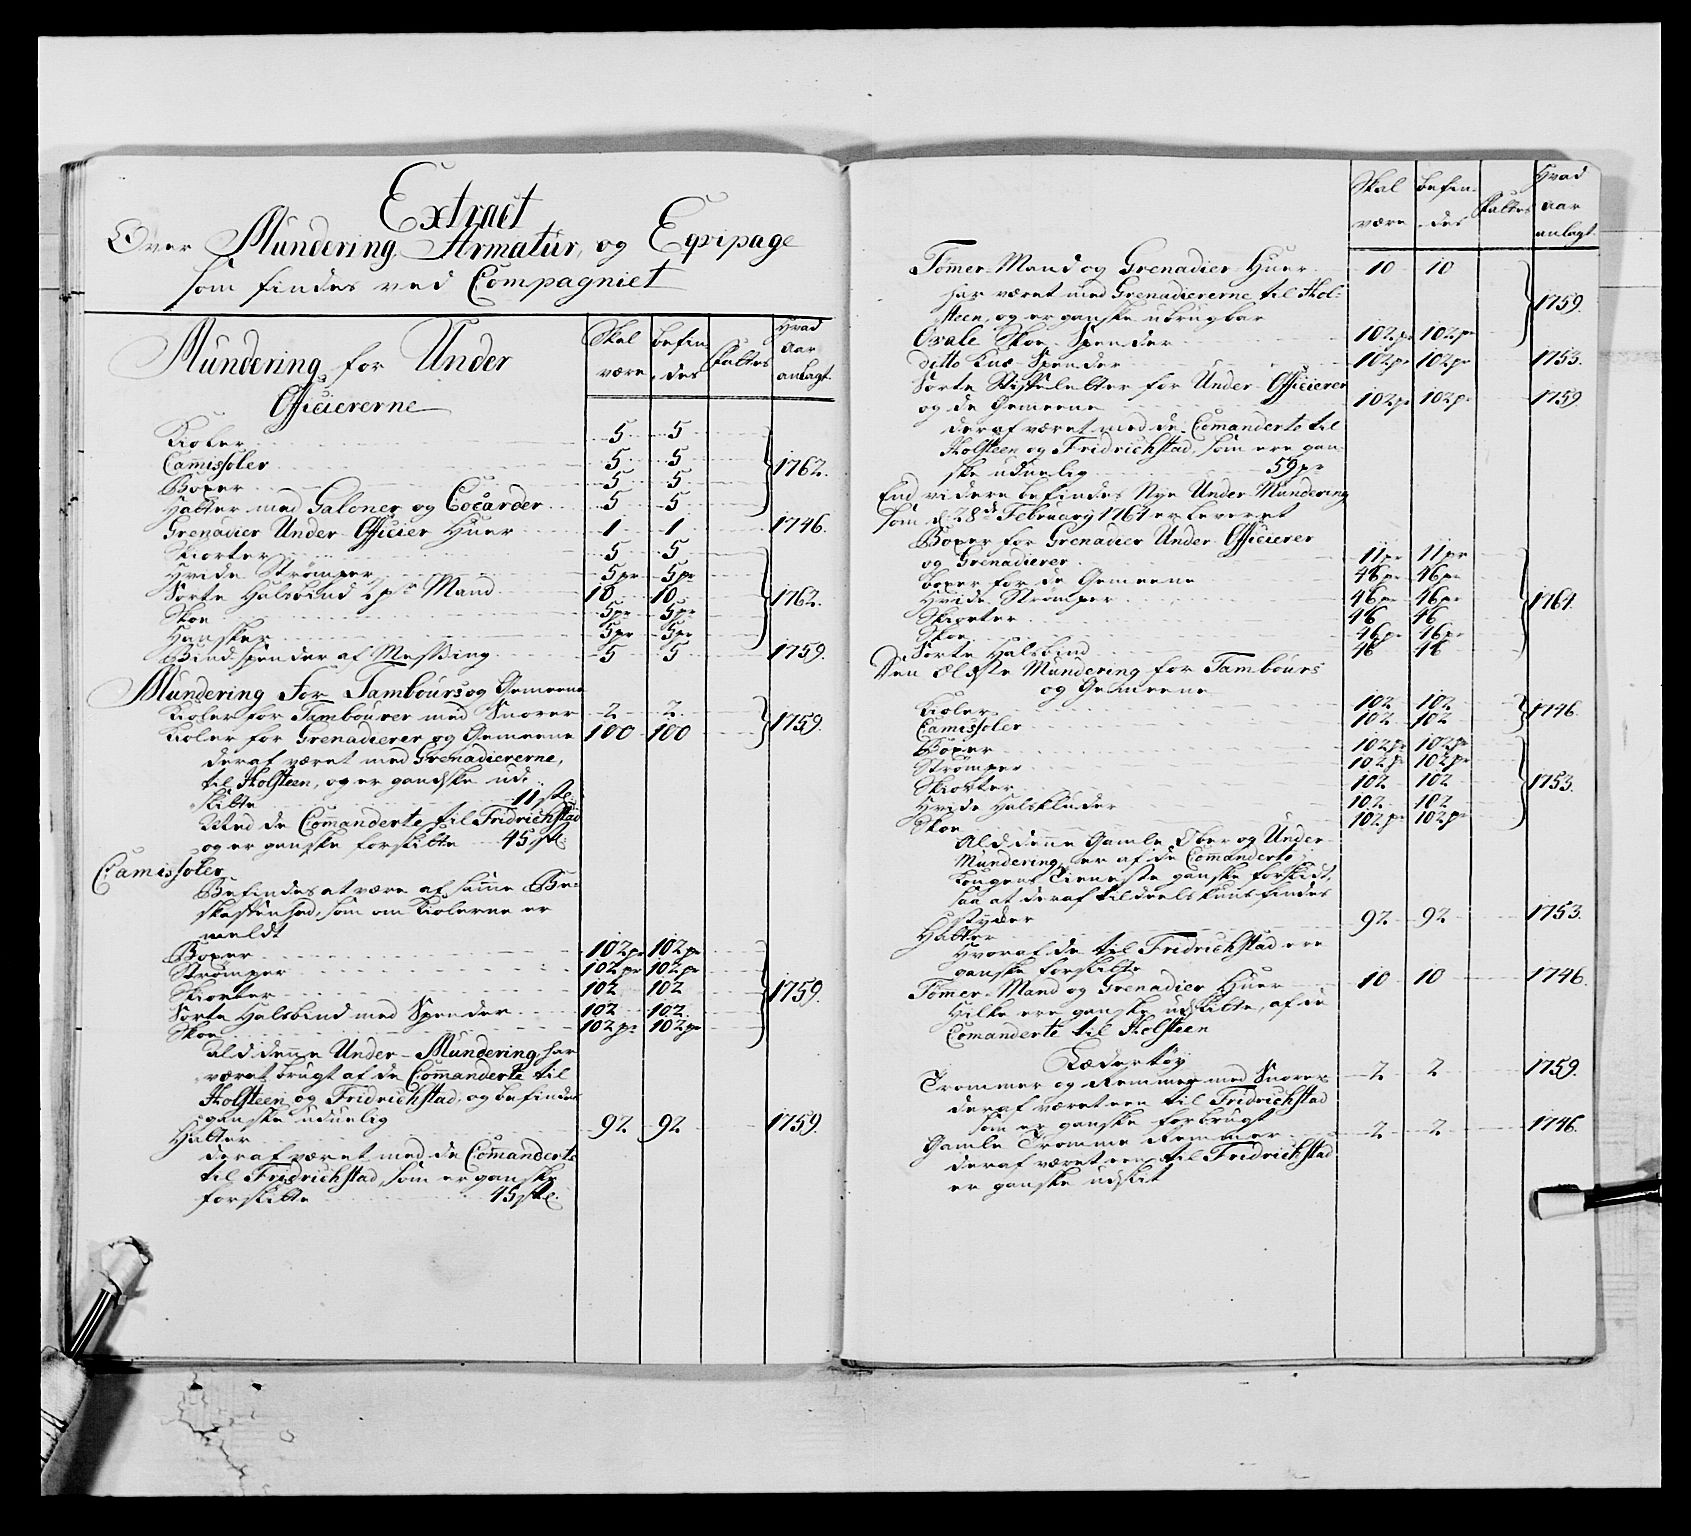 Extract
Over Mundering, Armatur, og Eqvipage
som findes ved Compagniet
Mundering for Under
Officiererne
Skal være
befindes
Fattes
Hvad Aar anlagt
Kioler 5 5
Camissoler 5 5 1762.
Boxer 5 5
Hatter med Galoner og Cocarder 5 5
Grenadier Under Officier Huer 1 1 1746.
Skiorter 5 5
Hvide Strømper 5pr 5pr
Sorte Halsbind 2 pr Mand 10 10 1762.
Skoe 5pr 5pr
Hansker 5pr 5pr
Bind Spender af Messing 5 5 1759.
Mundering For Tambours og Gemeene
Kioler for Tambourer med Snorer 2 2
Kioler for Grenadierer og Gemeene 100 100 1759.
deraf været med Grenadiererne,
til Holsteen, og er gandske ud,
slitte 11 stk.
Med de Comanderte til Fridrichstad
og er ganske forslitte 45 stk.
Camissoler
Befindes at være af samme Be-
skaffenhed, som om Kiolerne er
meldt
Boxer 102pr 102pr
Strømper 102pr 102pr
Skiorter 102 102 1759.
Sorte Halsbind med Spender 102 102
Skoe 102pr 102pr
Ald denne Under-Mundering har
været brugt af de Comanderte til
Holsteen og Fridrichstad, og befindes
ganske uduelig
Hatter 92 92 1759.
deraf været med de Comanderte
til Fridrichstad, som er ganske
forslitte 45 stk.
Skal være
befindes
Fattes
Hvad Aar anlagt
Tømer-Mand og Grenadier-Huer 10 10
har været med Grenadiererne til Hol-
steen, og er ganske ubrugbar 1759.
Ovale Skoe-Spender 102pr 102pr
ditto Knæ-Spender 102pr 102pr 1753.
Sorte Stifeletter for Under-Officierer
og de Gemeene 102pr 102pr 1759
deraf været med de Comanderte til
Holsteen og Fridrichstad, som ere gan-
ske uduelig 59pr
End videre befindes Nye Under-Mundering
som d. 28d. February 1764 er leveret
Boxer for Grenadier Under-Officierer
og Grenadierer 11pr 11pr
boxer for de Gemeene 46pr 46pr
Hvide Strømper 46pr 46pr 1764.
Skiorter 46 46
Skoe 46pr 46pr
Sorte Halsbind 46 46
Den Eldste Mundering for Tambours
og Gemeene
Kioler 102 102 1746.
Camissoler 102 102
Boxer 102pr 102pr
Strømper 102pr 102pr
Skiorter 102 102 1753.
Hvide Halskluder 102 102
Skoe 102pr 102pr
Ald denne Gamle Ober og Under-
Mundering, er af de Comanderte i
Kongens Tieneste ganske forslidt,
saa at deraf til deels kuns findes
stycker
Hatter 92 92 1753.
Hvoraf de til Fridrichstad ere
ganske forslitte
Tømer-Mand og Grenadier Huer 10 10 1746.
Hilke ere ganske udslitte, af de
Comanderte til Holsteen
Læedertøy
Trommer og Remmer med Snorer 2 2 1759.
deraf været een til Fridrichstad
som er ganske forbrugt
Gamle Tromme Remmer 2 2 1746.
deraf været een til Fridrichstad
er ganske udslit